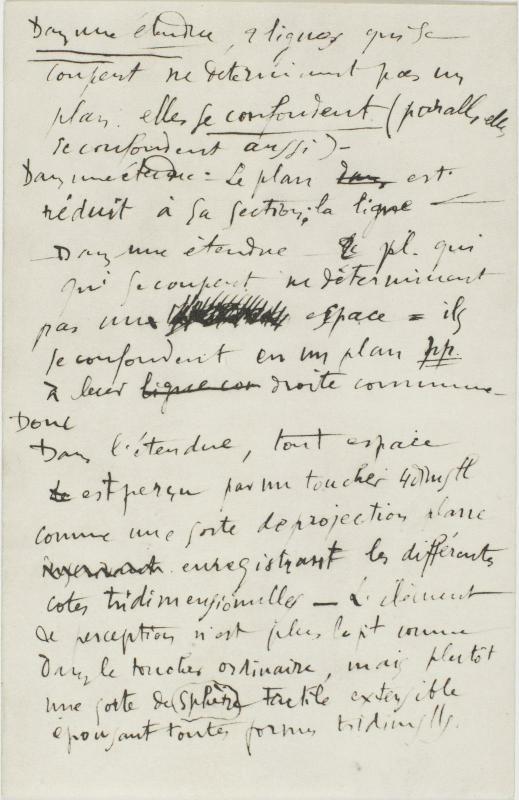 Dans une étendue, 2 lignes qui se
coupent ne déterminent pas un
plan. elles se confondent (parall. elles
se confondent aussi) –
Dans une étendue = Le plan dans est
réduit à sa section, la ligne –
– Dans une étendue – 2 pl. qui
qui se coupent ne déterminent
pas un espace = ils
se confondent en un plan pp.
à leur ligne com droite commune –
Donc
Dans l'étendue, tout espace
est perçu par un toucher 4dimsll
comme une sorte de projection plane
enregistrant les différentes
cotes tridimensionnelles – L'élément
de perception n'est plus le pt comme
Dans le toucher ordinaire, mais plutôt
une sorte de sphère tactile extensible
épousant toutes formes tridimslls.